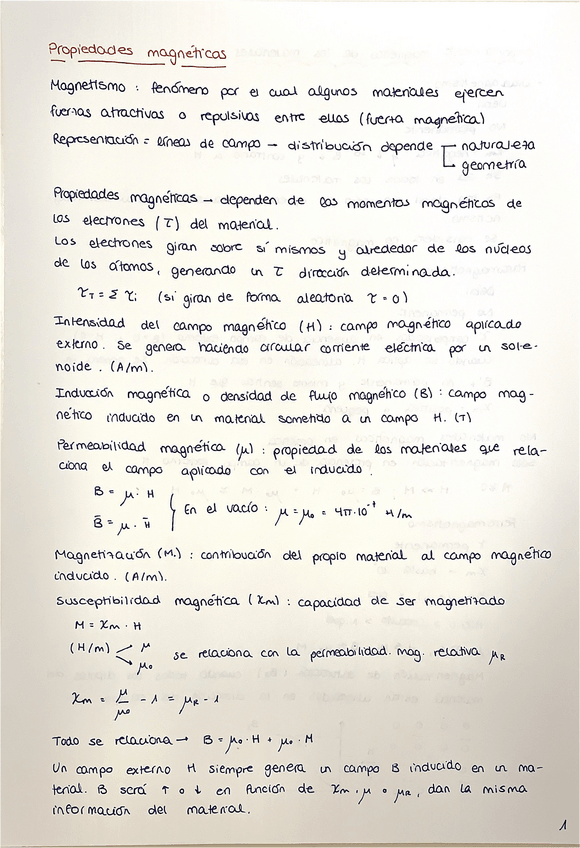 Propiedades magnéticas
Magnetismo : fenómeno por el cual algunos materiales ejercen
fuerzas atractivas o repulsivas entre ellas (fuerza magnética)
Representación = líneas de campo — distribución depende naturaleza
geometría
Propiedades magnéticas — dependen de los momentos magnéticos de
los electrones (τ) del material.
Los electrones giran sobre sí mismos y alrededor de los núcleos
de los átomos, generando un τ dirección determinada.
τT = Σ τi (si giran de forma aleatoria τ = 0)
Intensidad del campo magnético (H) : campo magnético aplicado
externo. Se genera haciendo circular corriente eléctrica por un sole-
noide. (A/m).
Inducción magnética o densidad de flujo magnético (B) : campo mag-
nético inducido en un material sometido a un campo H. (T)
Permeabilidad magnética (μ) : propiedad de los materiales que rela-
ciona el campo aplicado con el inducido.
B = μ · H
B̄ = μ · H̄
En el vacío : μ = μ₀ = 4π·10⁻⁷ H/m
Magnetización (M) : contribución del propio material al campo magnético
inducido. (A/m).
Susceptibilidad magnética (χm) : capacidad de ser magnetizado
M = χm · H
(H/m) μ
μ₀
se relaciona con la permeabilidad. mag. relativa μR
χm = μ/μ₀ - 1 = μR - 1
Todo se relaciona → B = μ₀ · H + μ₀ · M
Un campo externo H siempre genera un campo B inducido en un ma-
terial. B será ↑ o ↓ en función de χm, μ o μR, dan la misma
información del material.
1